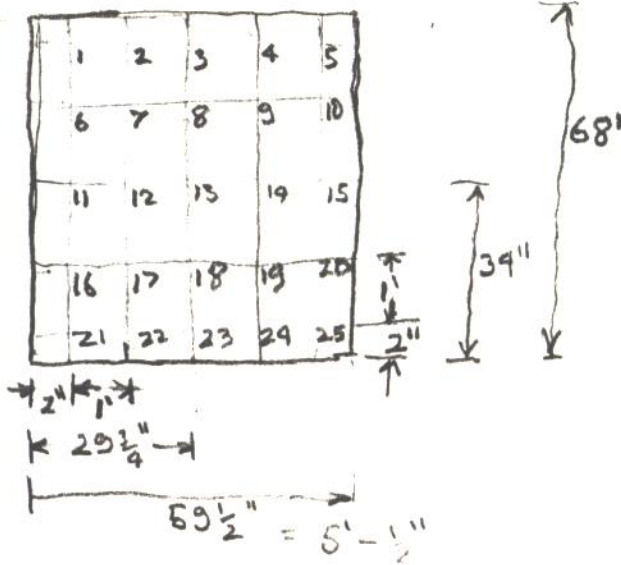 1 2 3 4 5
6 7 8 9 10
11 12 13 14 15
16 17 18 19 20
21 22 23 24 25
68"
34"
1'
2"
2" 1'
29 3/4"
59 1/2" = 5' - 1/2"